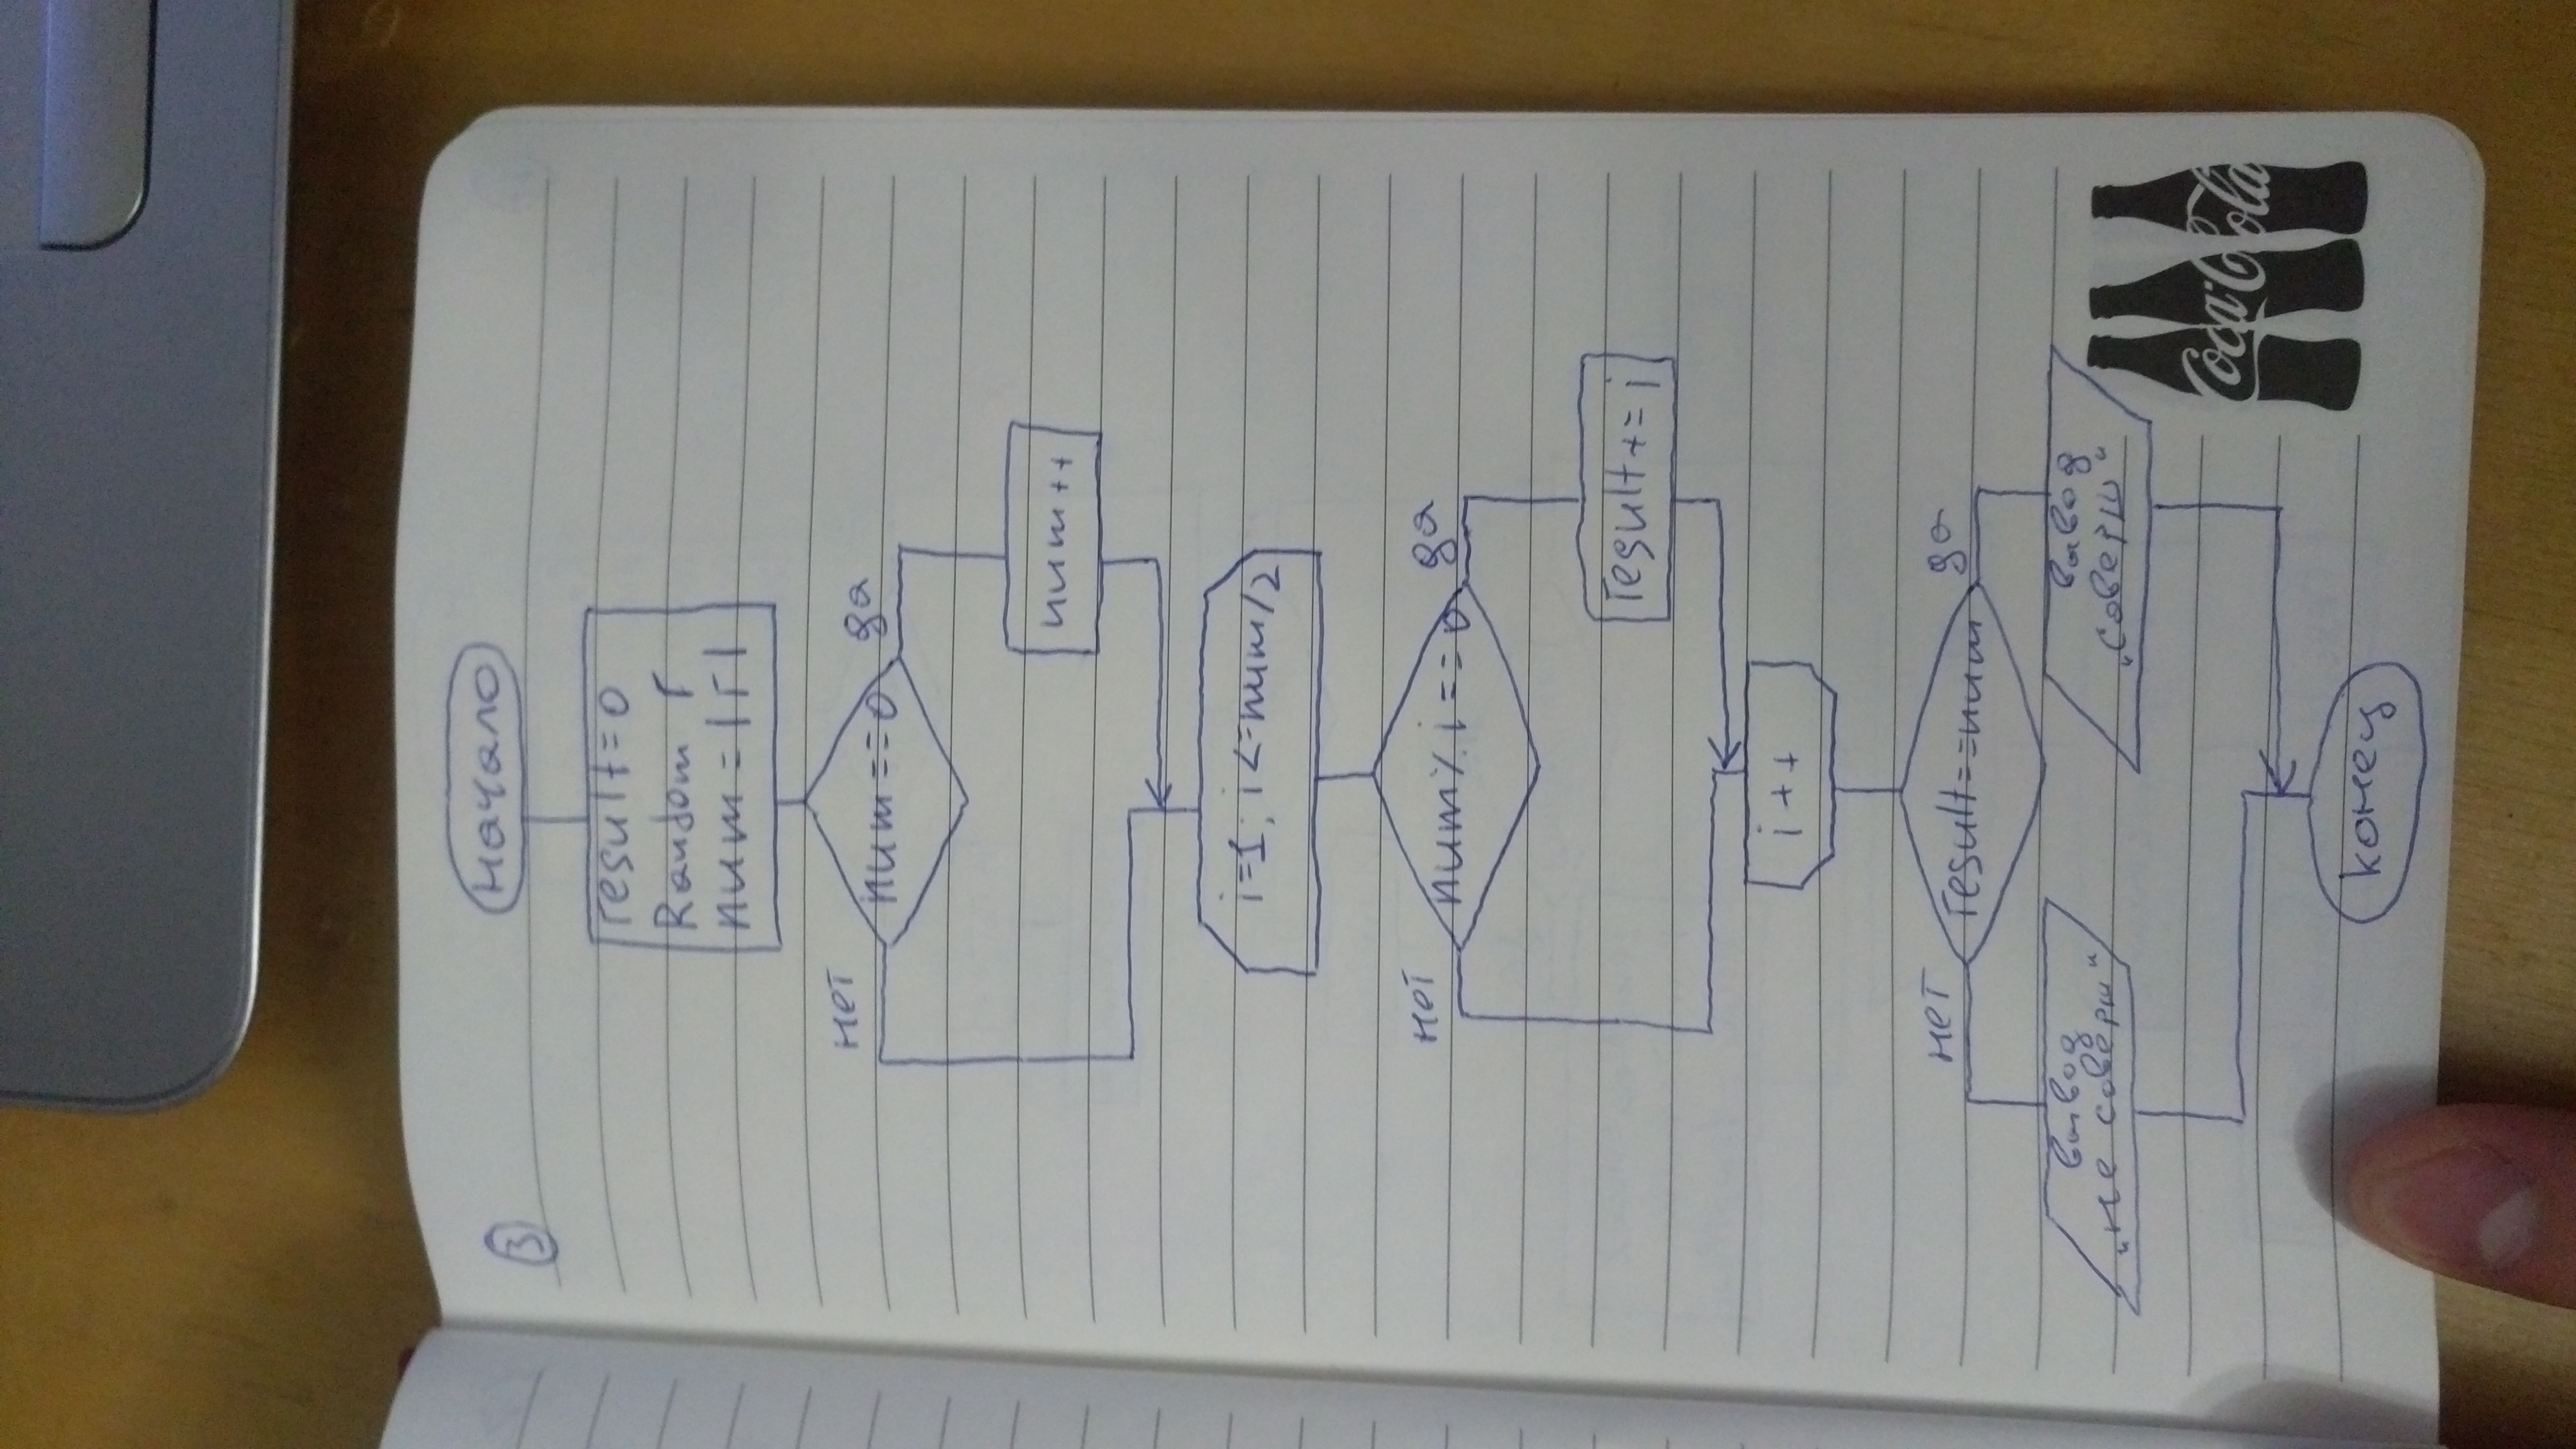 3
начало
result=0
Random r
num=|r|
num==0
нет
да
num++
i=1; i<=num/2
num%i==0
нет
да
result+=i
i++
result==num
нет
да
вывод
"не соверш"
вывод
"соверш"
конец
Coca-Cola